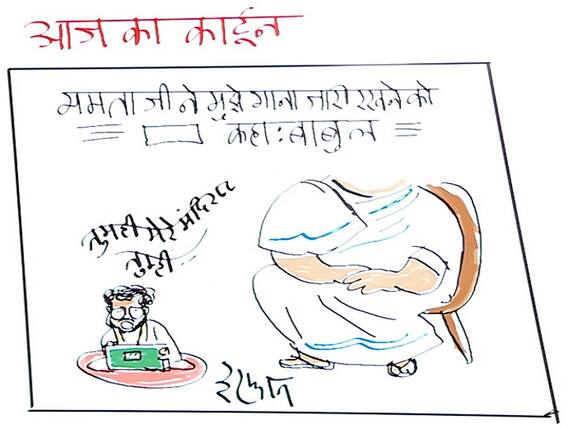 आज का कार्टून
ममता जी ने मुझे गाना जारी रखने को
कहा : बाबुल
तुमही मेरे मंदिर
तुम्ही...
इरफान